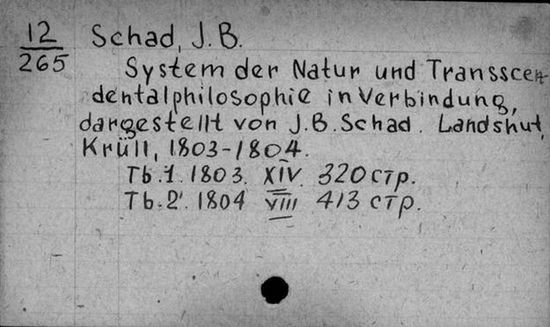 12
265
Schad, J. B.
System der Natur und Transscen-
dentalphilosophie in Verbindung,
dargestellt von J. B. Schad. Landshut,
Krüll, 1803-1804.
Tb. 1. 1803. XIV. 320 стр.
Tb. 2. 1804 VIII 413 стр.